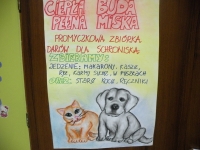 CIEPŁA BUDA
PEŁNA MISKA
PROMYCZKOWA ZBIÓRKA
DARÓW DLA SCHRONISKA:
ZBIERAMY:
JEDZENIE: MAKARONY, KASZE,
RYŻ, KARMY SUCHE, W PUSZKACH
STARE KOCE, RĘCZNIKI